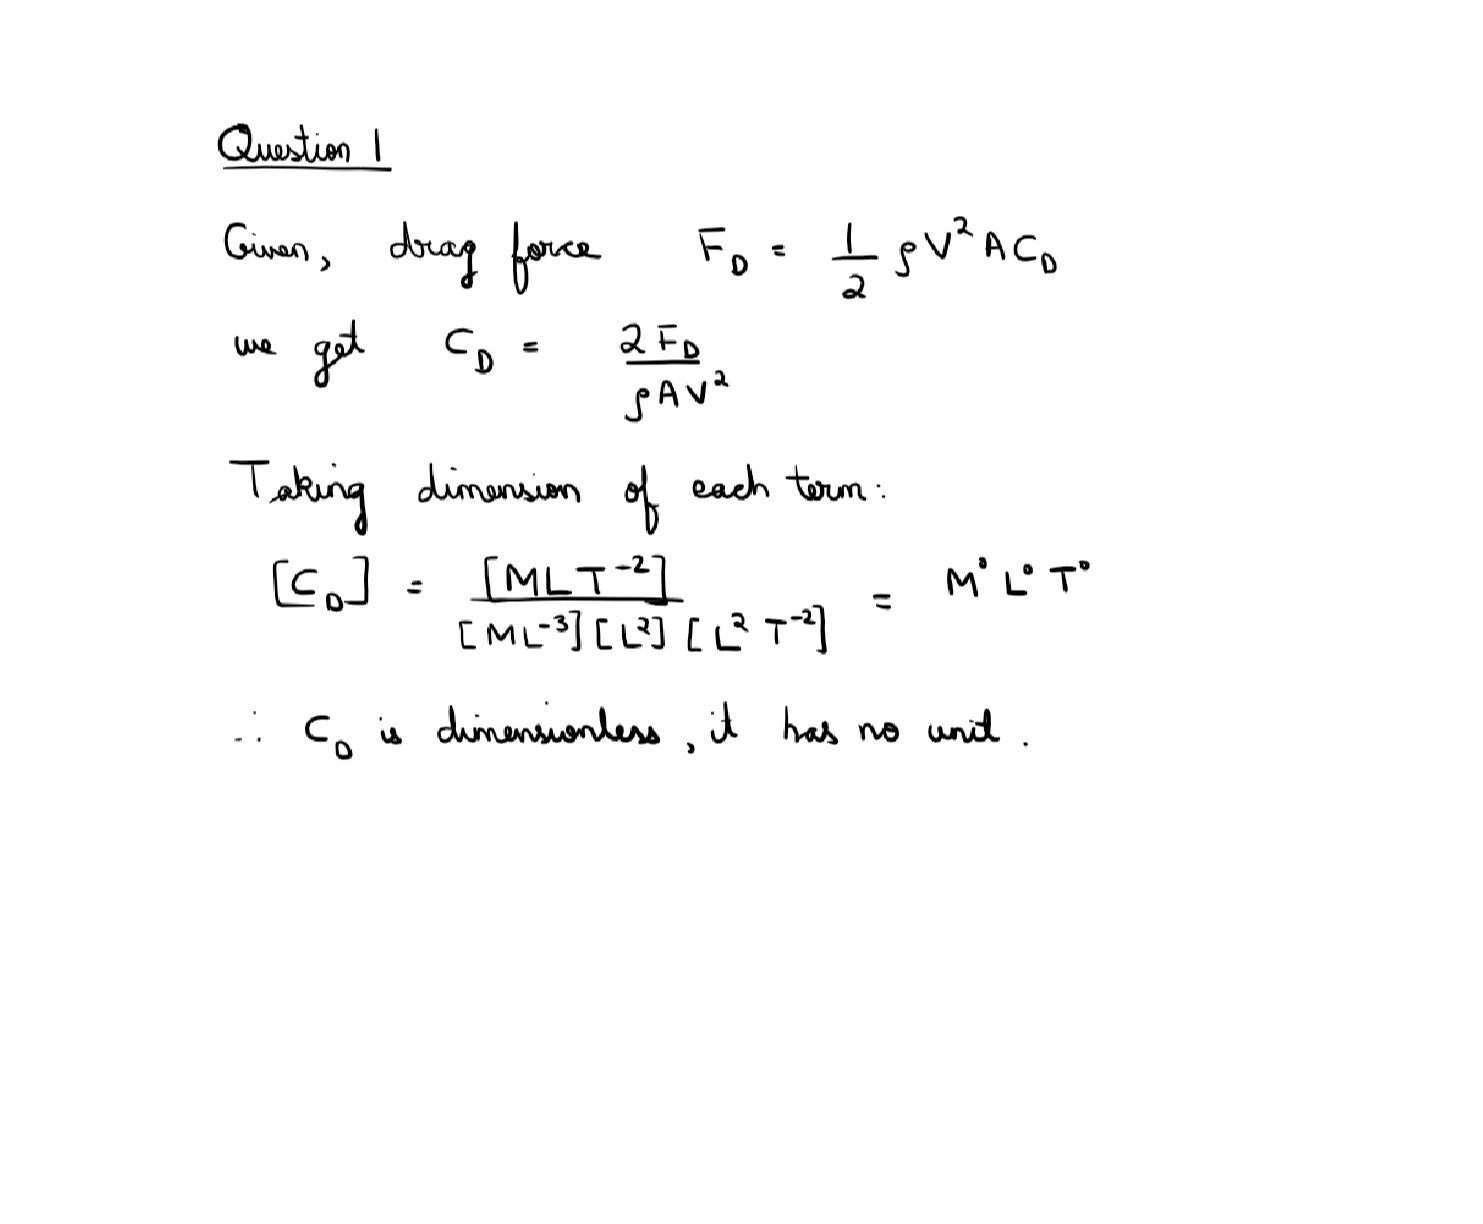 Question 1
Given, drag force F_D = 1/2 ρV²AC_D
we get C_D = 2F_D/ρAV²
Taking dimension of each term:
[C_D] = [MLT⁻²]/[ML⁻³][L²][L²T⁻²] = M⁰L⁰T⁰
∴ C_D is dimensionless, it has no unit.